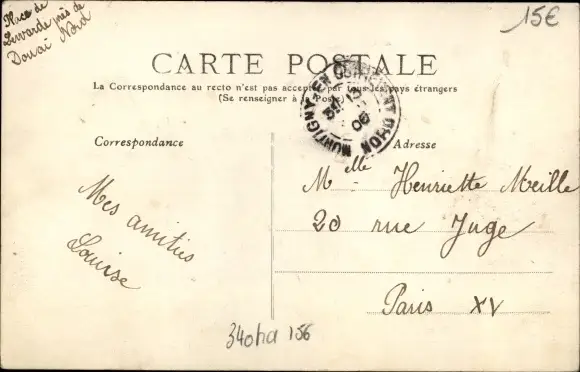 Place de
Lewarde près de
Douai Nord
15€
CARTE POSTALE
La Correspondance au recto n'est pas acceptée par tous les pays étrangers
(Se renseigner à la Poste)
MONTIGNY-EN-
06
Correspondance
Adresse
Mes amitiés
Louise
Melle Henriette Meille
20 rue Juge
Paris XV
34oha 156